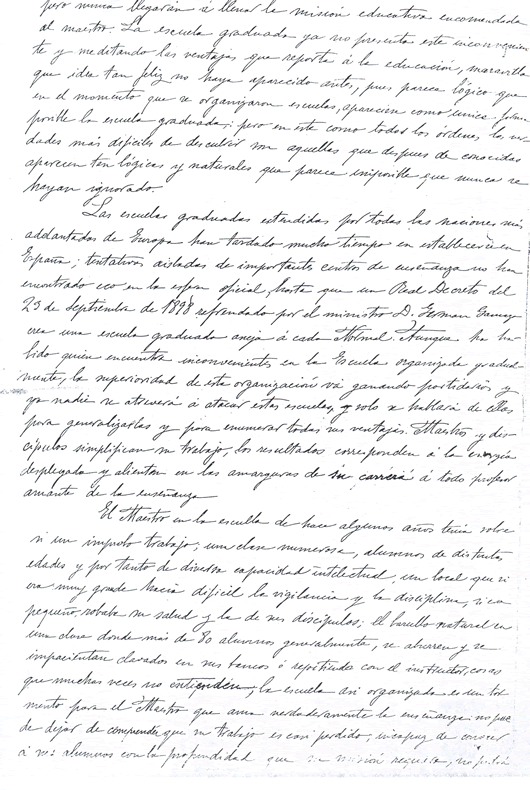 pero nunca llegarán a llenar la misión educativa encomendada
al maestro. La escuela graduada ya no presenta este inconvenien-
te y meditando las ventajas que reporta á la educación, maravilla
que idea tan feliz no haya aparecido antes, pues parece lógico que
en el momento que se organizaron escuelas, apareciera como única forma
posible la escuela graduada; pero en este como todos los órdenes, las ver-
dades más difíciles de descubrir son aquellas que despues de conocidas
aparecen tan lógicas y naturales que parece imposible que nunca se
hayan ignorado.
Las escuelas graduadas extendidas por todas las naciones más
adelantadas de Europa han tardado mucho tiempo en establecerse en
España; tentativas aisladas de importantes centros de enseñanza no han
encontrado eco en la esfera oficial, hasta que un Real Decreto del
23 de Septiembre de 1898 refrendado por el ministro D. German Gamazo
crea una escuela graduada aneja á cada Normal. Aunque ha ha-
bido quien encuentra inconvenientes en la Escuela organizada gradual-
mente, la superioridad de esta organización vá ganando partidarios y
ya nadie se atreverá á atacar estas escuelas, y solo se hablará de ellas
para generalizarlas y para enumerar todas sus ventajas. Maestro y dis-
cípulos simplifican su trabajo, los resultados corresponden á la energía
desplegada y alientan en las amarguras de su carrera á todo profesor
amante de la enseñanza
El Maestro en la escuela de hace algunos años tenía sobre
si un improbo trabajo; una clase numerosa, alumnos de distintas
edades y por tanto de diversa capacidad intelectual, un local que si
era muy grande hacía difícil la vigilancia y la disciplina, si era
pequeño robaba su salud y la de sus discípulos; el barullo natural en
una clase donde más de 80 alumnos generalmente, se aburren y se
impacientan clavados en sus bancos ó repitiendo con el instructor, cosas
que muchas veces no entienden, la escuela asi organizada es un tor-
mento para el Maestro que ama verdaderamente la enseñanza no pue-
de dejar de comprender que su trabajo es casi perdido, incapaz de conocer
á sus alumnos con la profundidad que su misión requiere, no podrá